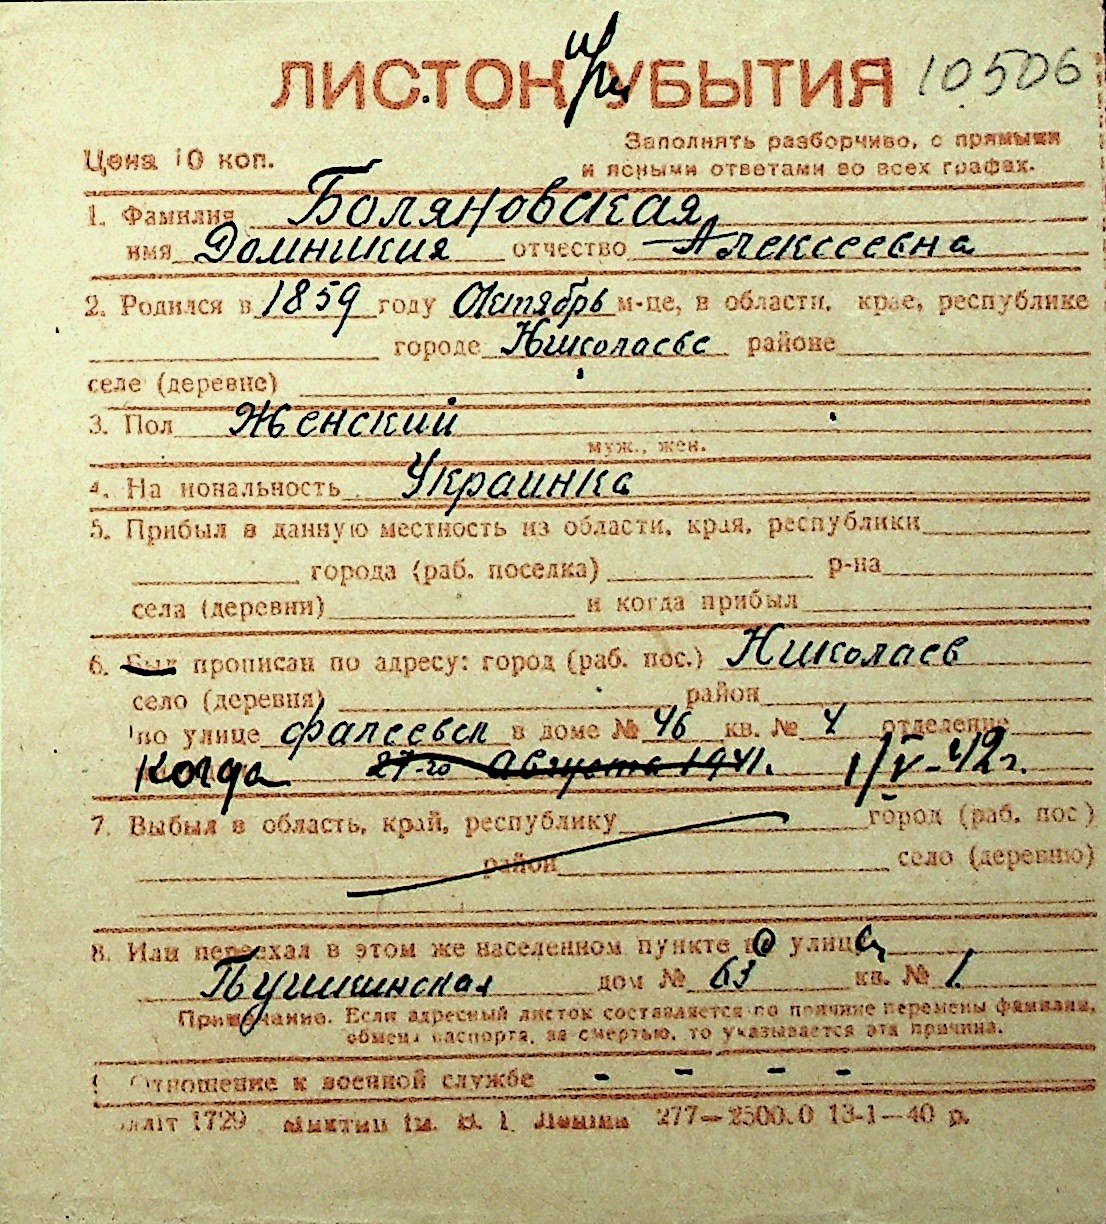 ЛИСТОК при УБЫТИЯ 10506
Цена 10 коп.
Заполнять разборчиво, с прямыми
и ясными ответами во всех графах.
1. Фамилия Боляновская
имя Домникия отчество Алексеевна
2. Родился в 1859 году Октябрь м-це, в области, крае, республике
городе Николаеве районе
селе (деревне)
3. Пол Женский
муж., жен.
4. На иональность Украинка
5. Прибыл в данную местность из области, края, республики
города (раб. поселка) р-на
села (деревни) и когда прибыл
6. Был прописан по адресу: город (раб. пос.) Николаев
село (деревня) район
по улице Фалеевск в доме № 46 кв. № 4 отделение
Когда 27-го Августа 1941. 1/V-42 г.
7. Выбыл в область, край, республику город (раб. пос.)
район село (деревню)
8. Или переехал в этом же населенном пункте по улице
Пушкинская дом № 63 кв. № 1.
Примечание. Если адресный листок составляется по причине перемены фамилии,
обмена паспорта, за смертью, то указывается эта причина.
9. Отношение к военной службе - - - -
1729 ім. В. І. Леніна 277—2500.0 13-1—40 р.